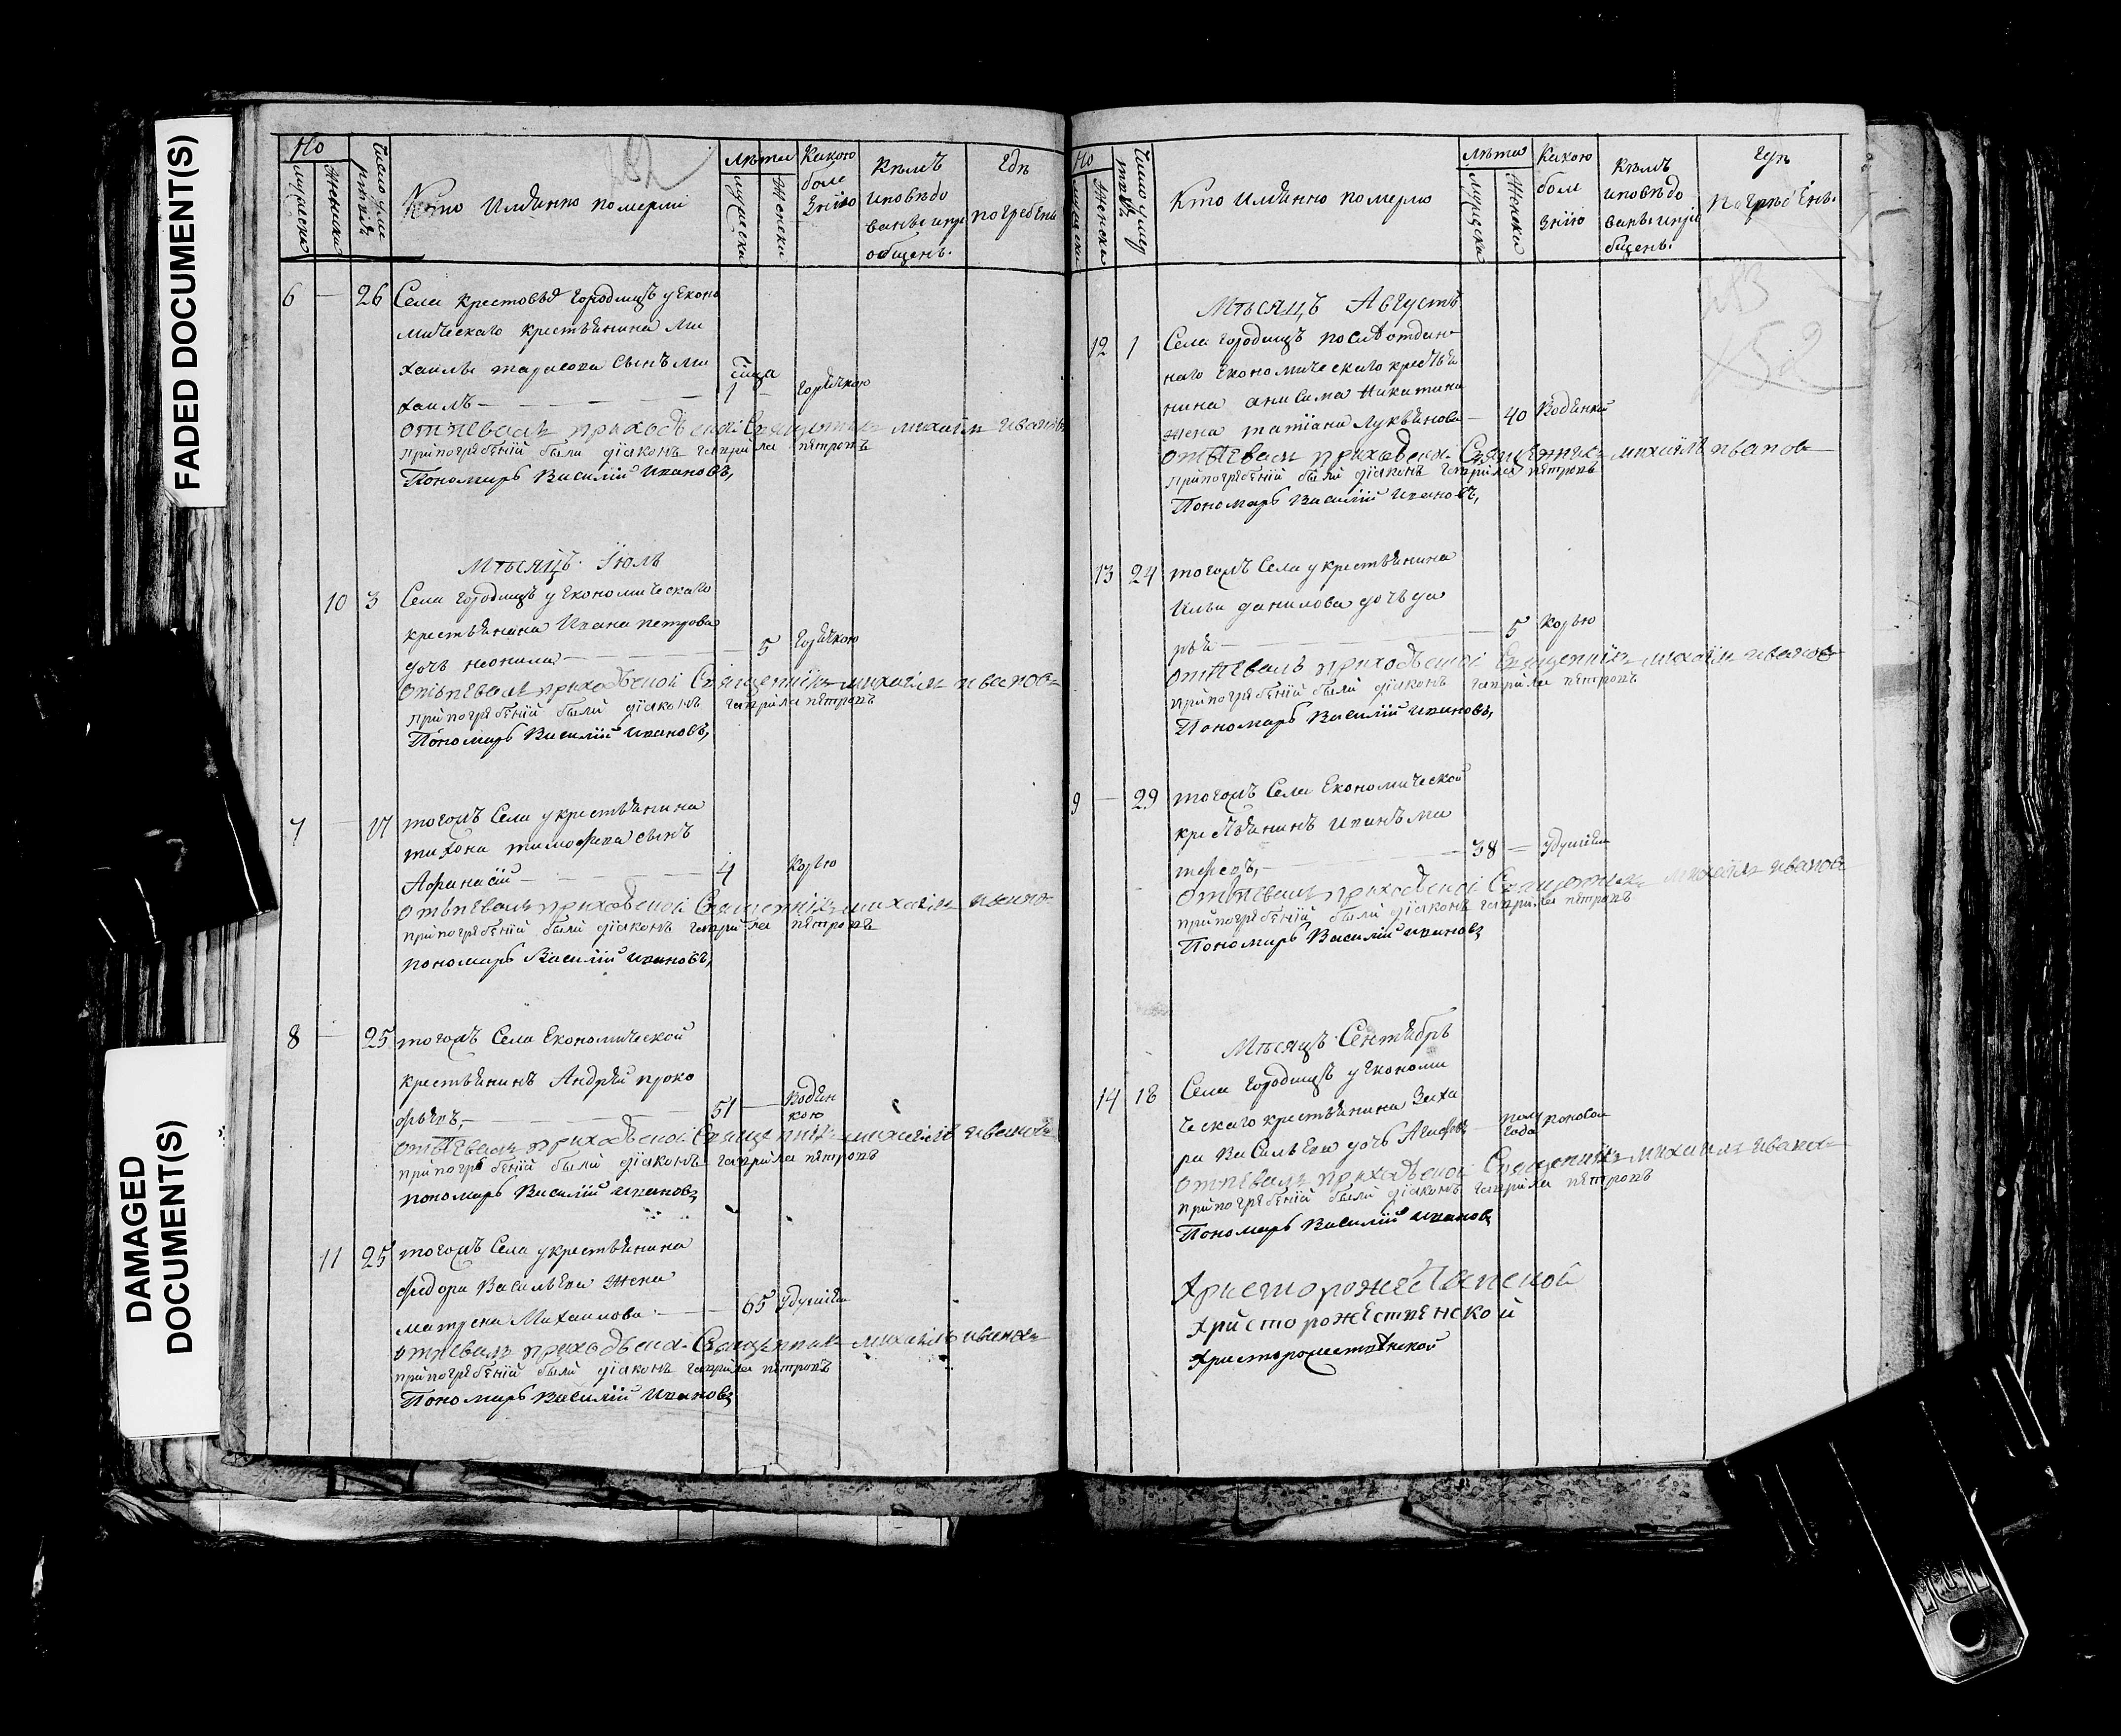 FADED DOCUMENT(S)
DAMAGED
DOCUMENT(S)
182
Но
мужеска
женска
Число умертвія
Кто имянно померли
Лѣта
мужеска
женска
Какою
боле
знію
Кѣмъ
исповѣдо
ваны и прі
общены.
Гдѣ
погребены
6 — 26 Села Крестовъ Городищъ у Еконо
мическаго крестьянина Ми
хаилы тарасова Сынъ Ми
хаилъ — 1 года — Горячкою
отпевалъ приходской Священникъ михаилъ иванов
при погребеніи были діаконъ гаврила петровъ
Пономарь Василій Ивановъ,
Мѣсяцъ Іюль
10 3 Села Городищъ у Економическаго
крестьянина Ивана петрова
дочь неонила — 5 Горячкою
отпевалъ приходской Священникъ михаилъ иванов
при погребеніи были діаконъ гаврила петровъ
Пономарь Василій Ивановъ,
7 — 17 тогожъ Села у крестьянина
тихона тимофеева сынъ
Афанасій — 4 Корью
отпевалъ приходской Священникъ михаилъ иванов
при погребеніи были діаконъ гаврила петровъ
пономарь Василій Ивановъ,
8 — 25 тогожъ Села Економической
крестьянинъ Андрей проко
фьевъ, — 51 — Водян
кою
отпевалъ приходской Священникъ михаилъ иванов
при погребеніи были діаконъ гаврила петровъ
пономарь Василій Ивановъ
11 25 тогожъ Села у крестьянина
Федора Васильева Жена
матрена Михаилова — 65 Удушьем
отпевалъ приходской Священник михаилъ иванов
при погребеніи были діаконъ гаврила петровъ
Пономарь Василій Ивановъ
Но
мужеска
женска
Кто имянно померло
Лѣта
мужеска
женска
Какою
боле
знію
Кѣмъ
исповѣдо
ваны и прі
бщены.
Гдѣ
Погребены.
183
52
Мѣсяцъ Августъ
12 1 Села Городищъ
наго Економическаго крестья
нина анисима Никитина
жена татіана Лукьянова — 40 Водянкой
отпевалъ приходской Священникъ михаилъ иванов
при погребеніи были діаконъ гаврила петровъ
Пономарь Василій Ивановъ,
13 24 тогожъ Села у крестьянина
Ильи данилова дочь да
рья — 5 Корью
отпевалъ приходской Священникъ михаилъ иванов
при погребеніи были діаконъ гаврила петровъ
Пономарь Василій Ивановъ,
9 — 29 тогожъ Села Економической
крестьянинъ Иванъ ма
тфеевъ, — 38 — Удушьем
отпевалъ приходской Священникъ михаилъ иванов
при погребеніи были діаконъ гаврила петровъ
Пономарь Василій Ивановъ
Мѣсяцъ Сентябрь
14 18 Села Городищъ у Економи
ческаго крестьянина Заха
ра Васильева дочь Агафья полу
года
отпевалъ приходской Священникъ михаилъ иванов
при погребеніи были діаконъ гаврила петровъ
Пономарь Василій Ивановъ
Христорожественской
Христорожественской
Христорожественской